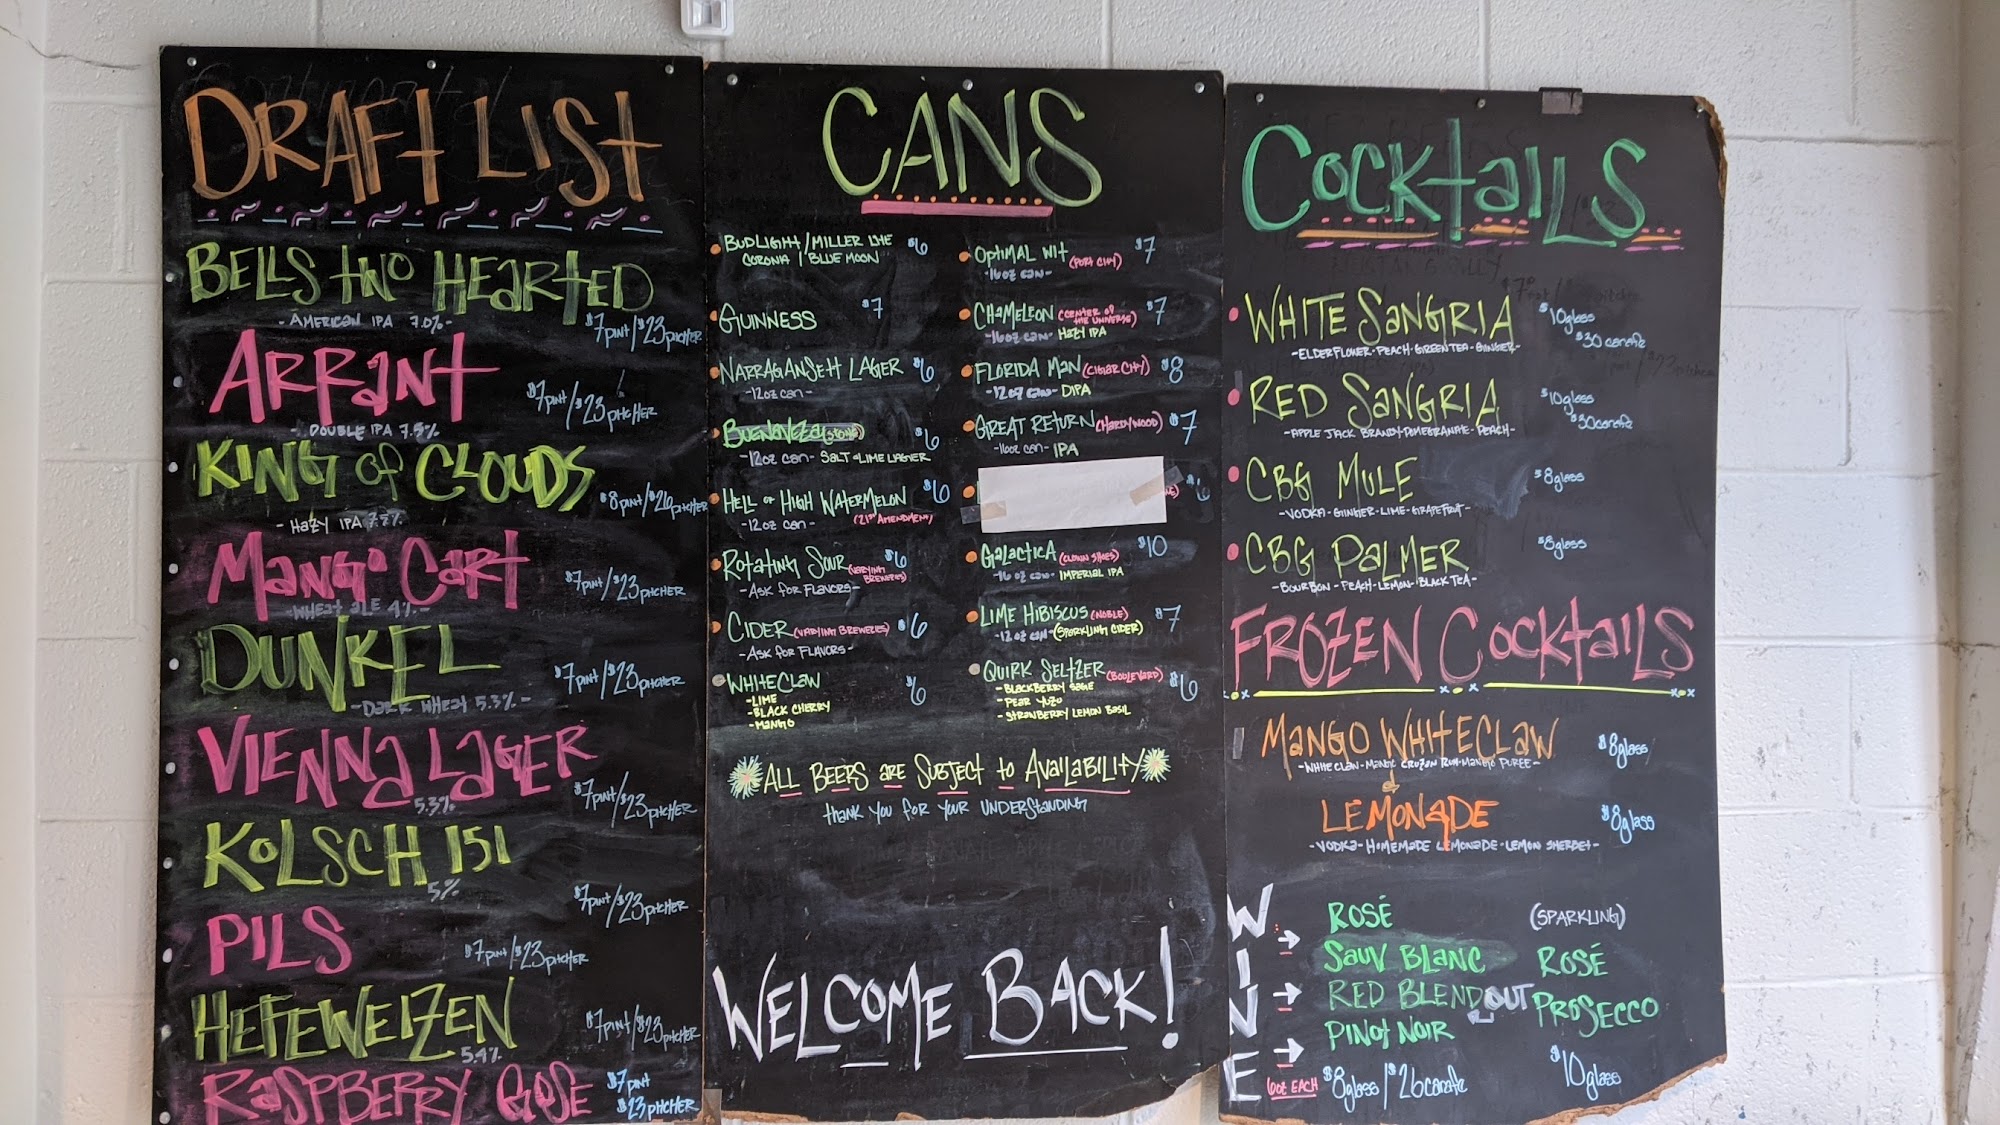 DRAFT LIST
BELLS TWO HEARTED
- AMERICAN IPA 7.0% -
$7 pint/$23 pitcher
ARRANT
- DOUBLE IPA 7.5%
$7 pint/$23 pitcher
KING OF CLOUDS
- HAZY IPA 7.8%
$8 pint/$26 pitcher
MANGO CART
- WHEAT ALE 4% -
$7 pint/$23 pitcher
DUNKEL
- DARK WHEAT 5.3% -
$7 pint/$23 pitcher
VIENNA LAGER
5.3%
$7 pint/$23 pitcher
KOLSCH 151
5%
$7 pint/$23 pitcher
PILS
$7 pint/$23 pitcher
HEFEWEIZEN
5.4%
$7 pint/$23 pitcher
RASPBERRY GOSE
$7 pint
$23 pitcher
CANS
BUDLIGHT/MILLER LITE $6
CORONA / BLUE MOON
GUINNESS $7
NARRAGANSETT LAGER $6
- 12oz can -
BUENAVEZA (STONE) $6
- 12oz can - SALT & LIME LAGER
HELL OR HIGH WATERMELON $6
- 12oz can - (21ST AMENDMENT)
ROTATING SOUR (VARYING BREWERIES) $6
- ASK FOR FLAVORS -
CIDER (VARYING BREWERIES) $6
- ASK FOR FLAVORS -
WHITECLAW $6
- LIME
- BLACK CHERRY
- MANGO
OPTIMAL WIT (PORT CITY) $7
- 16oz can -
CHAMELEON (CENTER OF THE UNIVERSE) $7
- 16oz can - HAZY IPA
FLORIDA MAN (CIGAR CITY) $8
- 12oz can - DIPA
GREAT RETURN (HARDYWOOD) $7
- 16oz can - IPA
$6
GALACTICA (CLOWN SHOES) $10
- 16oz can - IMPERIAL IPA
LIME HIBISCUS (NOBLE) $7
- 12oz can - (SPARKLING CIDER)
QUIRK SELTZER (BOULEVARD) $6
- BLACKBERRY SAGE
- PEAR YUZU
- STRAWBERRY LEMON BASIL
ALL BEERS ARE SUBJECT TO AVAILABILITY
THANK YOU FOR YOUR UNDERSTANDING
WELCOME BACK!
COCKTAILS
WHITE SANGRIA $10 glass
- ELDERFLOWER - PEACH - GREEN TEA - GINGER - $30 carafe
RED SANGRIA $10 glass
- APPLE JACK BRANDY - POMEGRANATE - PEACH - $30 carafe
CBG MULE $8 glass
- VODKA - GINGER - LIME - GRAPEFRUIT -
CBG PALMER $8 glass
- BOURBON - PEACH - LEMON - BLACK TEA -
FROZEN COCKTAILS
MANGO WHITECLAW $8 glass
- WHITE CLAW - MANGO CRUZAN RUM - MANGO PUREE -
&
LEMONADE $8 glass
- VODKA - HOMEMADE LEMONADE - LEMON SHERBET -
WINE
ROSÉ
SAUV BLANC
RED BLEND OUT
PINOT NOIR
6oz EACH $8 glass / $26 carafe
(SPARKLING)
ROSÉ
PROSECCO
$10 glass